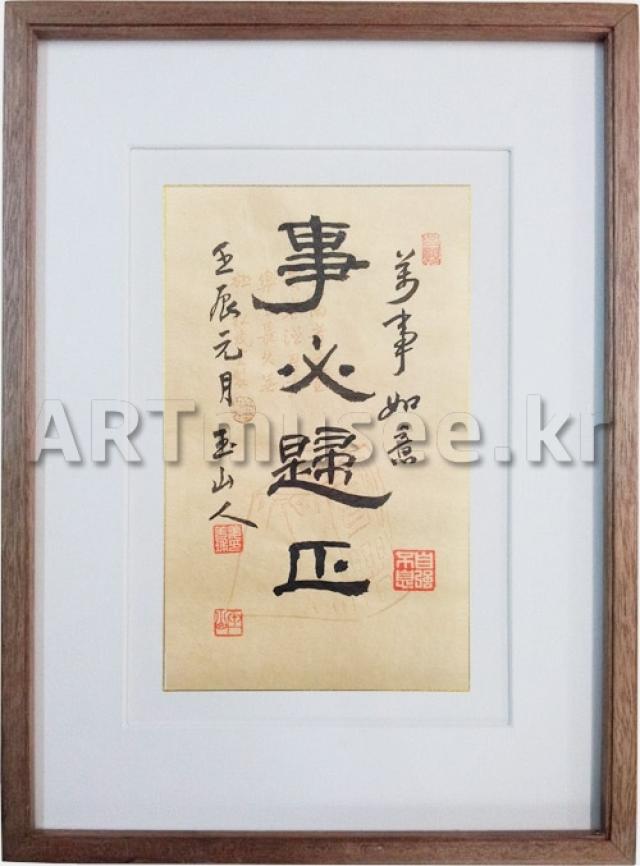 萬事如意
事必歸正
壬辰元月 玉山人
自强不息
ARTmusee.kr